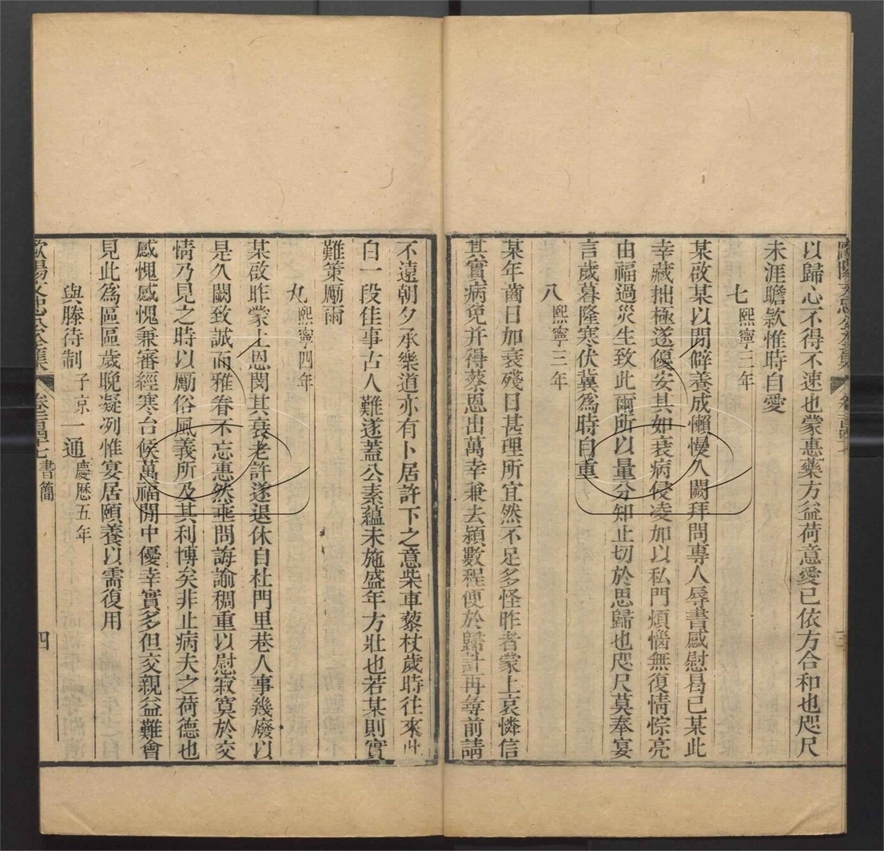 以歸心不得不速也蒙惠藥方益荷意愛已依方合和也咫尺
未涯瞻款惟時自愛
七熙寧三年
某啟某以閒僻養成懶慢久闕拜問專人辱書感慰曷已某此
幸藏拙極遂優安其如衰病侵凌加以私門煩惱無復情悰亮
由福過災生致此爾所以量分知止切於思歸也咫尺莫奉宴
言歲暮隆寒伏冀為時自重
八熙寧三年
某年齒日加衰殘日甚理所宜然不足多怪昨者蒙上哀憐信
其實病免并得蔡恩出萬幸兼去潁數程便於歸計再每前請
不遠朝夕承樂道亦有卜居許下之意柴車藜杖歲時往來此
自一段佳事古人難遂蓋公素蘊未施盛年方壯也若某則實
難策勵爾
九熙寧四年
某啟昨蒙上恩閔其衰老許遂退休自杜門里巷人事幾廢以
是久闕致誠而雅眷不忘惠然垂問誨諭稠重以慰寂寞於交
情乃見之時以勵俗風義所及其利博矣非止病夫之荷德也
感愧感愧兼審經寒台候萬福閒中優幸實多但交親益難會
見此為區區歲晚凝冽惟宴居頤養以需復用
與滕待制子京一通慶曆五年
歐陽文忠公全集 卷一百四十七書簡 四